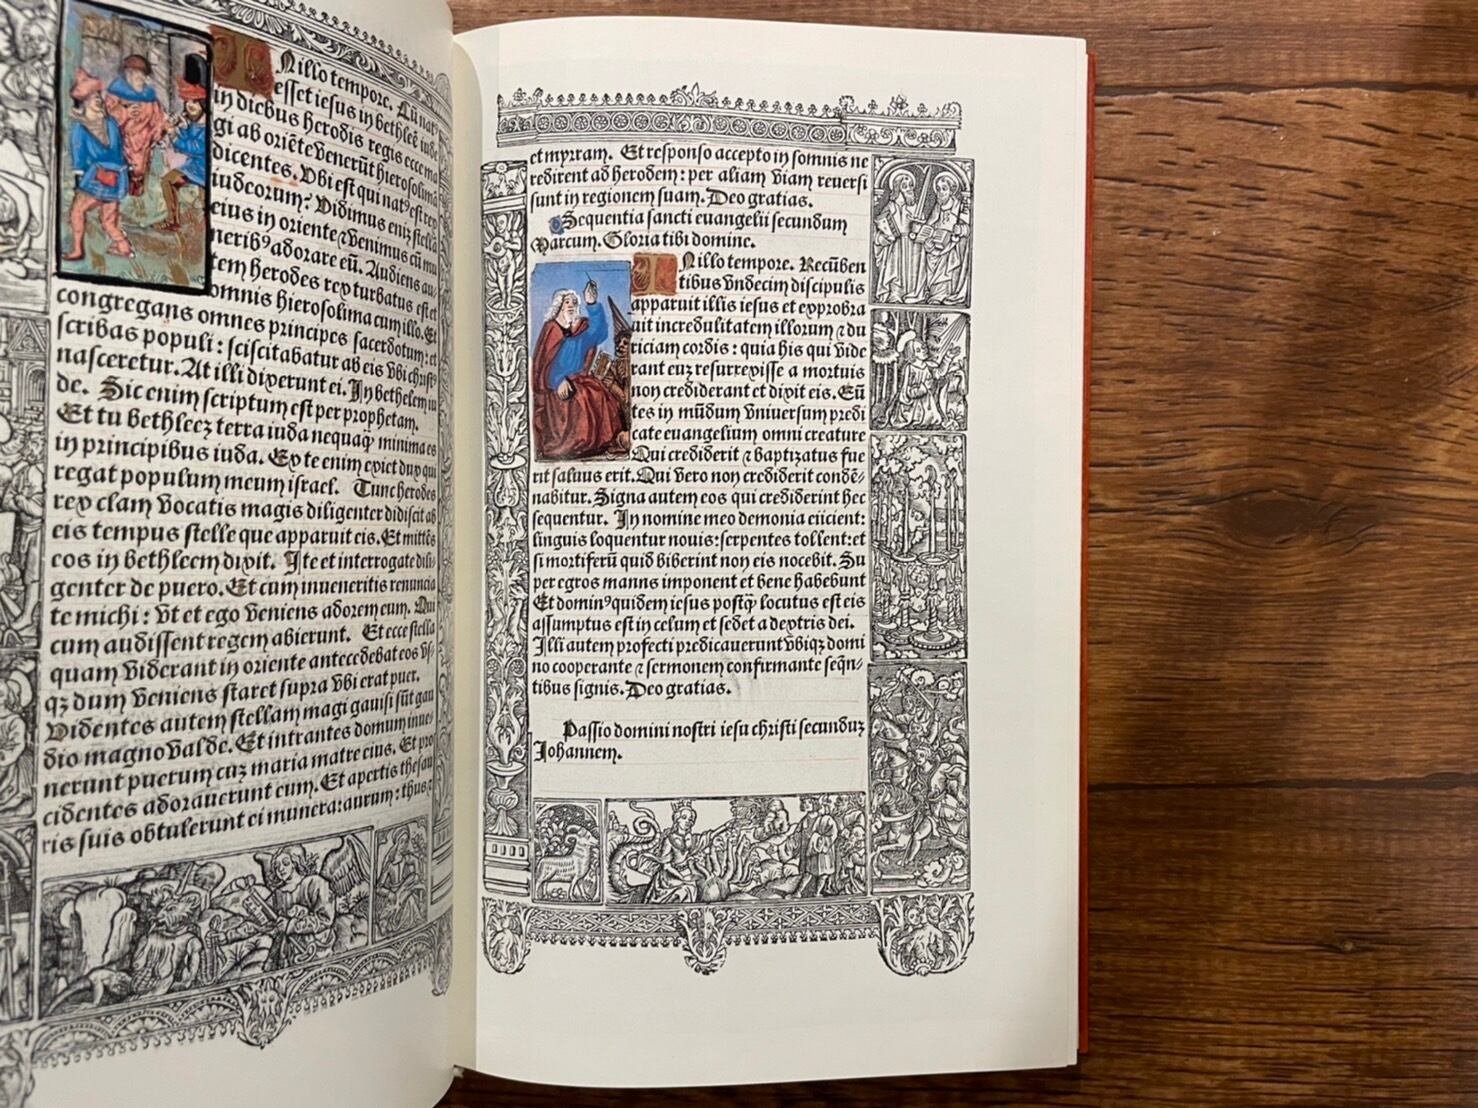 In illo tempore. Cū nat⁹
esset iesus in bethleē iude
in diebus herodis regis ecce ma
gi ab oriēte venerūt hierosolimā
dicentes. Vbi est qui nat⁹ est rex
iudeorum? Vidimus eniz stellā
eius in oriente ⁊ venimus cū mu
nerib⁹ adorare eū. Audiens au-
tem herodes rex turbatus est et
omnis hierosolima cum illo. Et
congregans omnes principes sacerdotum: et
scribas populi: sciscitabatur ab eis vbi christ⁹
nasceretur. At illi dixerunt ei. In bethelem iu
de. Sic enim scriptum est per prophetam.
Et tu bethleez terra iuda nequaq̃ minima es
in principibus iuda. Ex te enim exiet dux qui
regat populum meum israel. Tunc herodes
rex clam vocatis magis diligenter didiscit ab
eis tempus stelle que apparuit eis. Et mittēs
eos in bethleem dixit. Ite et interrogate dili-
genter de puero. Et cum inueneritis renuncia
te michi: vt et ego veniens adorem eum. Qui
cum audissent regem abierunt. Et ecce stella
quam viderant in oriente antecedebat eos vs-
qz dum veniens staret supra vbi erat puer.
Videntes autem stellam magi gauisi sūt gau
dio magno valde. Et intrantes domum inue-
nerunt puerum cuz maria matre eius. Et pro
cidentes adorauerunt eum. Et apertis thesau
ris suis obtulerunt ei munera: aurum: thus ⁊
et myrram. Et responso accepto in somnis ne
redirent ad herodem: per aliam viam reuersi
sunt in regionem suam. Deo gratias.
Sequentia sancti euangelii secundum
Marcum. Gloria tibi domine.
In illo tempore. Recūben
tibus vndecim discipulis
apparuit illis iesus et exprobra
uit incredulitatem illorum ⁊ du
riciam cordis: quia his qui vide
rant euz resurrexisse a mortuis
non crediderant et dixit eis. Eū
tes in mūdum vniuersum predi
cate euangelium omni creature
Qui crediderit ⁊ baptizatus fue
rit saluus erit. Qui vero non crediderit condē-
nabitur. Signa autem eos qui crediderint hec
sequentur. In nomine meo demonia eiicient:
linguis loquentur nouis: serpentes tollent: et
si mortiferū quid biberint non eis nocebit. Su
per egros manns imponent et bene habebunt
Et domin⁹ quidem iesus postq̃ locutus est eis
assumptus est in celum et sedet a dextris dei.
Illi autem profecti predicauerunt vbiqz domi
no cooperante ⁊ sermonem confirmante seqn̄-
tibus signis. Deo gratias.
Passio domini nostri iesu christi secunduz
Johannem.